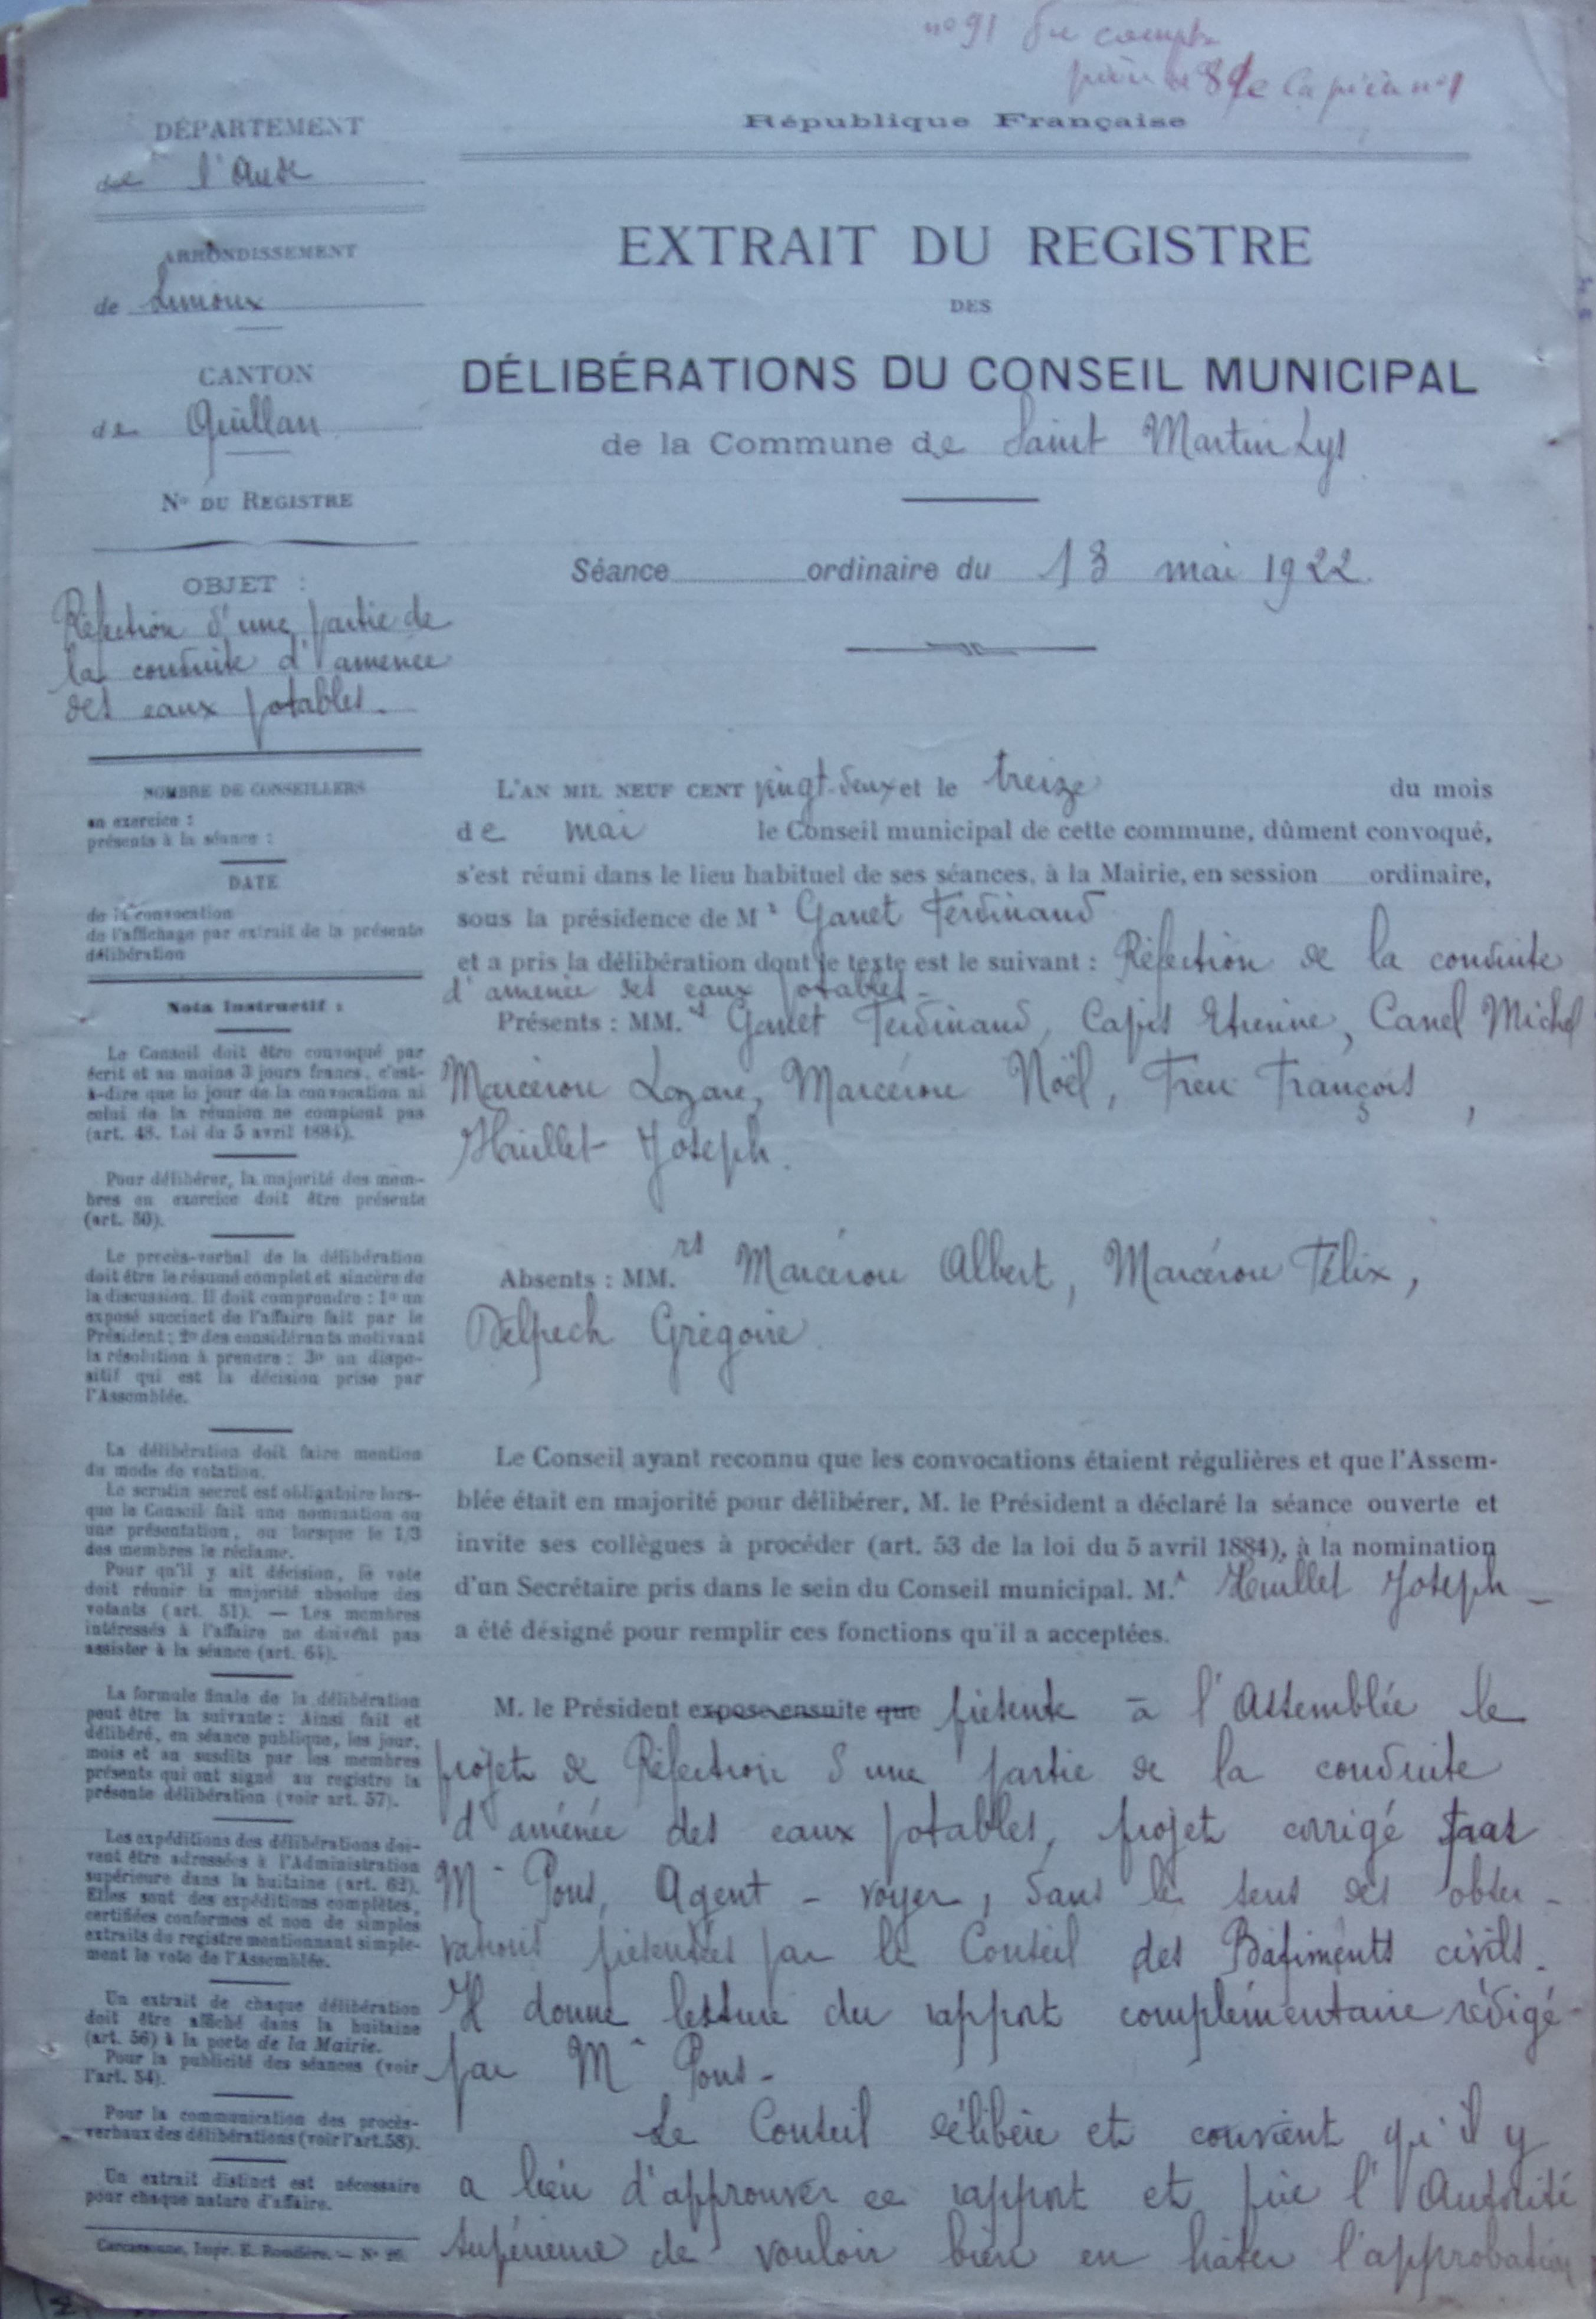 nº 91 du compte
pièce nº 8 de la pièce nº 1
République Française
DÉPARTEMENT
de l'Aude
ARRONDISSEMENT
de Limoux
CANTON
de Quillan
Nº DU REGISTRE
OBJET :
Réfection d'une partie de
la conduite d'amenée
des eaux potables.
NOMBRE DE CONSEILLERS
en exercice :
présents à la séance :
DATE
de la convocation
de l'affichage par extrait de la présente
délibération
Nota Instructif :
Le Conseil doit être convoqué par
écrit et au moins 3 jours francs, c'est-
à-dire que le jour de la convocation ni
celui de la réunion ne comptent pas
(art. 48. Loi du 5 avril 1884).
Pour délibérer, la majorité des mem-
bres en exercice doit être présente
(art. 50).
Le procès-verbal de la délibération
doit être le résumé complet et sincère de
la discussion. Il doit comprendre : 1º un
exposé succinct de l'affaire fait par le
Président ; 2º des considérants motivant
la résolution à prendre ; 3º un dispo-
sitif qui est la décision prise par
l'Assemblée.
La délibération doit faire mention
du mode de votation.
Le scrutin secret est obligatoire lors-
que le Conseil fait une nomination ou
une présentation, ou lorsque le 1/3
des membres le réclame.
Pour qu'il y ait décision, le vote
doit réunir la majorité absolue des
votants (art. 51). — Les membres
intéressés à l'affaire ne doivent pas
assister à la séance (art. 64).
La formule finale de la délibération
peut être la suivante : Ainsi fait et
délibéré, en séance publique, les jour,
mois et an susdits par les membres
présents qui ont signé au registre la
présente délibération (voir art. 57).
Les expéditions des délibérations doi-
vent être adressées à l'Administration
supérieure dans la huitaine (art. 62).
Elles sont des expéditions complètes,
certifiées conformes et non de simples
extraits du registre mentionnant simple-
ment le vote de l'Assemblée.
Un extrait de chaque délibération
doit être affiché dans la huitaine
(art. 56) à la porte de la Mairie.
Pour la publicité des séances (voir
l'art. 54).
Pour la communication des procès-
verbaux des délibérations (voir l'art. 58).
Un extrait distinct est nécessaire
pour chaque nature d'affaire.
Carcassonne, Impr. E. Roudière. — Nº
EXTRAIT DU REGISTRE
DES
DÉLIBÉRATIONS DU CONSEIL MUNICIPAL
de la Commune de Saint Martin Lys
Séance ordinaire du 13 mai 1922
L'AN MIL NEUF CENT vingt-deux et le treize du mois
de mai le Conseil municipal de cette commune, dûment convoqué,
s'est réuni dans le lieu habituel de ses séances, à la Mairie, en session ordinaire,
sous la présidence de Mr Ganet Ferdinand
et a pris la délibération dont le texte est le suivant : Réfection de la conduite
d'amenée des eaux potables -
Présents : MM.rs Ganet Ferdinand, Capis Etienne, Canel Michel
Marcérou Lazare, Marcérou Noël, Freu François,
Huillet Joseph.
Absents : MM.rs Marcérou Albert, Marcérou Félix,
Delpech Grégoire.
Le Conseil ayant reconnu que les convocations étaient régulières et que l'Assem-
blée était en majorité pour délibérer, M. le Président a déclaré la séance ouverte et
invite ses collègues à procéder (art. 53 de la loi du 5 avril 1884), à la nomination
d'un Secrétaire pris dans le sein du Conseil municipal. M.r Huillet Joseph -
a été désigné pour remplir ces fonctions qu'il a acceptées.
M. le Président expose ensuite que présente à l'Assemblée le
projet de Réfection d'une partie de la conduite
d'aménée des eaux potables, projet corrigé par
Mr Pons, Agent-voyer, dans le sens des obser-
vations présentées par le Conseil des Bâtiments civils.
Il donne lecture du rapport complémentaire rédigé
par Mr Pons.
Le Conseil délibère et convient qu'il y
a lieu d'approuver ce rapport et prie l'Autorité
supérieure de vouloir bien en hâter l'approbation